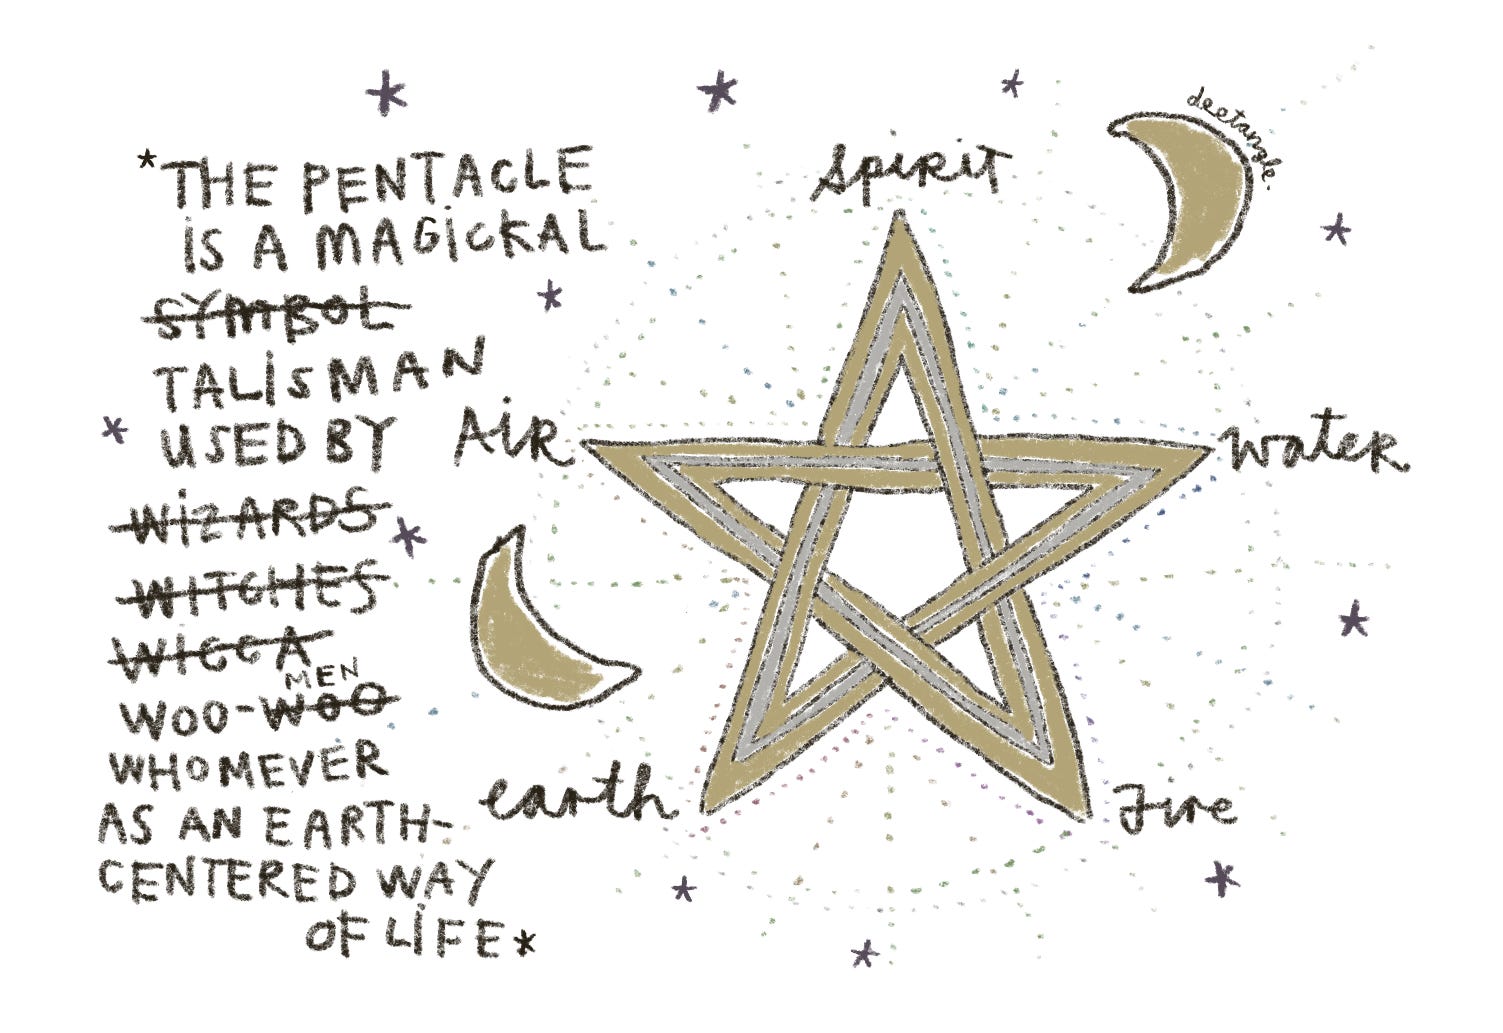 *THE PENTACLE
iS A MAGiCKAL
SYMBOL
TALiSMAN
USED BY
WiZARDS
WITCHES
WICCA
MEN
WOO-WOO
WHOMEVER
AS AN EARTH-
CENTERED WAY
OF LiFE*
Spirit
deetangle.
AiR
water
earth
Fire